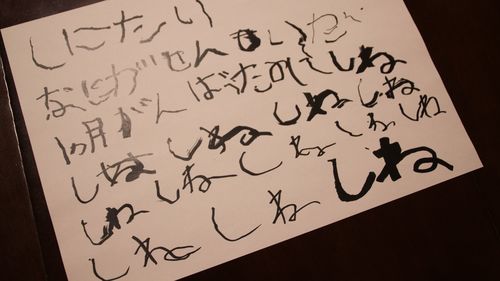 しにたい
なにがせん
1ヵ月がんばたのにしね
しね しね しね しね
しね しね しね しね しね
しね しね しね